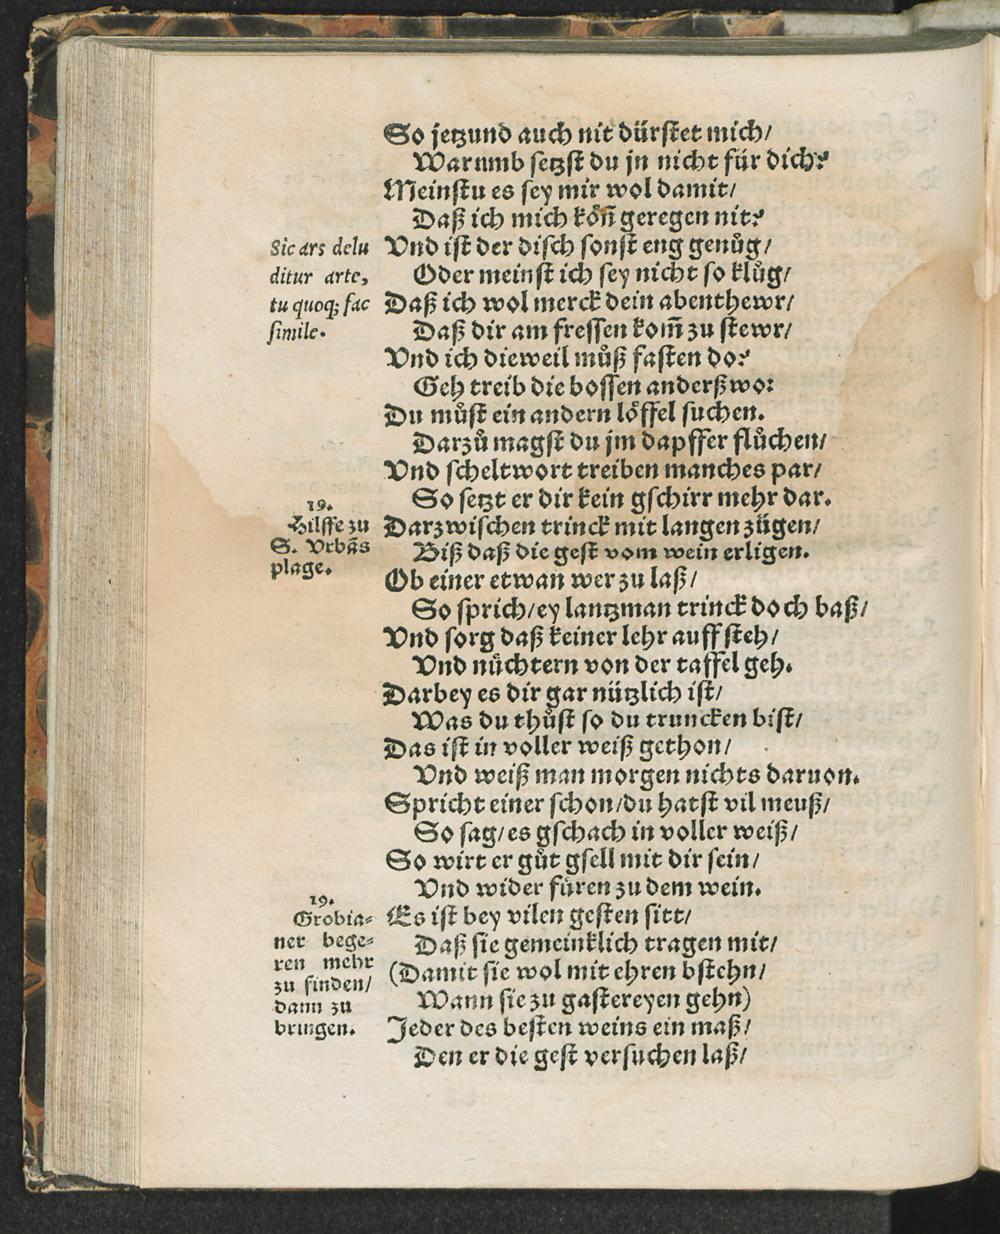 So jetzund auch nit dürstet mich/
Warumb setzst du jn nicht für dich?
Meinstu es sey mir wol damit/
Daß ich mich koͤn̄ geregen nit?
Sic ars delu
ditur arte,
tu quoq; fac
simile.
Vnd ist der disch sonst eng genuͦg/
Oder meinst ich sey nicht so kluͦg/
Daß ich wol merck dein abenthewr/
Daß dir am fressen kom̄ zu stewr/
Vnd ich dieweil muͦß fasten do?
Geh treib die bossen anderßwo:
Du muͦst ein andern loͤffel suchen.
Darzuͦ magst du jm dapffer fluͦchen/
Vnd scheltwort treiben manches par/
So setzt er dir kein gschirr mehr dar.
19.
Hilffe zu
S. Vrbãs
plage.
Darzwischen trinck mit langen zügen/
Biß daß die gest vom wein erligen.
Ob einer etwan wer zu laß/
So sprich/ey lantzman trinck doch baß/
Vnd sorg daß keiner lehr auff steh/
Vnd nüchtern von der taffel geh.
Darbey es dir gar nützlich ist/
Was du thuͦst so du truncken bist/
Das ist in voller weiß gethon/
Vnd weiß man morgen nichts daruon.
Spricht einer schon/du hatst vil meuß/
So sag/es gschach in voller weiß/
So wirt er guͦt gsell mit dir sein/
Vnd wider füren zu dem wein.
19.
Grobia-
ner bege-
ren mehr
zu finden/
dann zu
bringen.
Es ist bey vilen gesten sitt/
Daß sie gemeinklich tragen mit/
(Damit sie wol mit ehren bstehn/
Wann sie zu gastereyen gehn)
Jeder des besten weins ein maß/
Den er die gest versuchen laß/